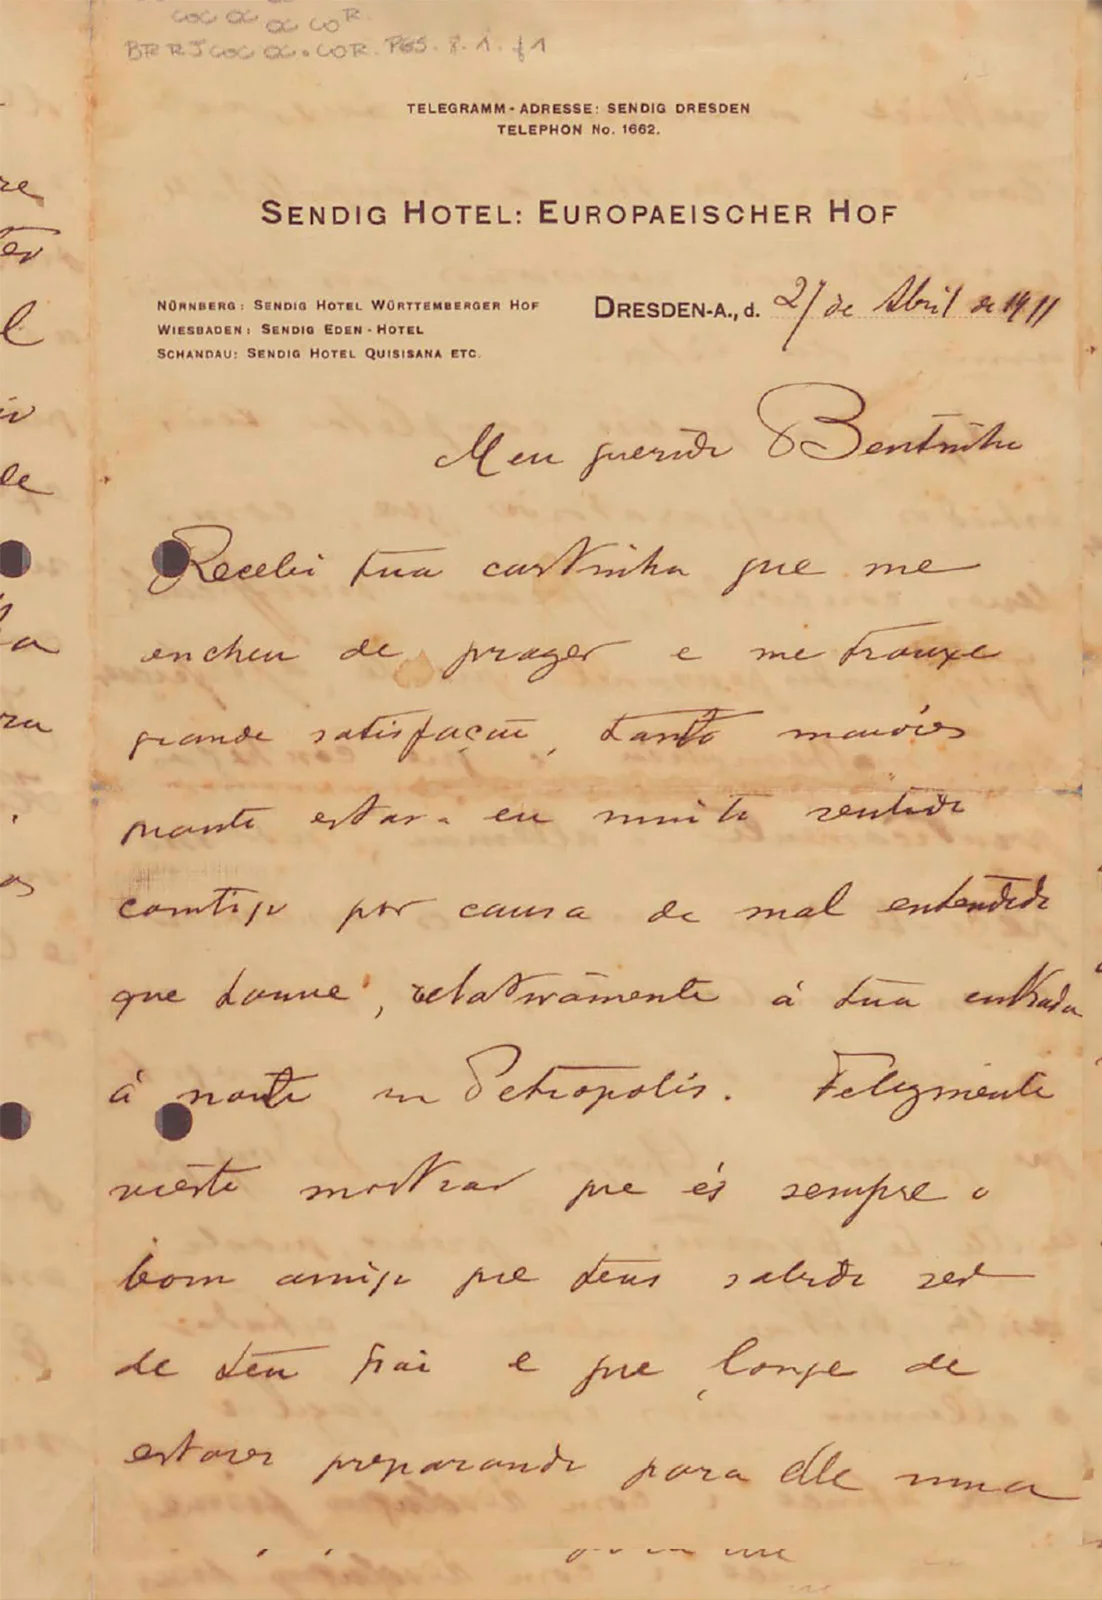 COC OC OC COR
BR RJCOC OC.COR.PGS.8.1.f1
TELEGRAMM-ADRESSE: SENDIG DRESDEN
TELEPHON No. 1662.
SENDIG HOTEL: EUROPAEISCHER HOF
NÜRNBERG: SENDIG HOTEL WÜRTTEMBERGER HOF
WIESBADEN: SENDIG EDEN-HOTEL
SCHANDAU: SENDIG HOTEL QUISISANA ETC.
DRESDEN-A., d. 27 de Abril de 1911
Meu querido Bentinho
Recebi tua cartinha que me
encheu de prazer e me trouxe
grande satisfação, tanto maiores
quanto estava eu muito sentido
comtigo por causa de mal entendido
que houve, relativamente á tua entrada
á noute em Petropolis. Felizmente
vieste mostrar que és sempre o
bom amigo que tens sabido ser
de teu pai e que longe de
estares preparando para elle uma